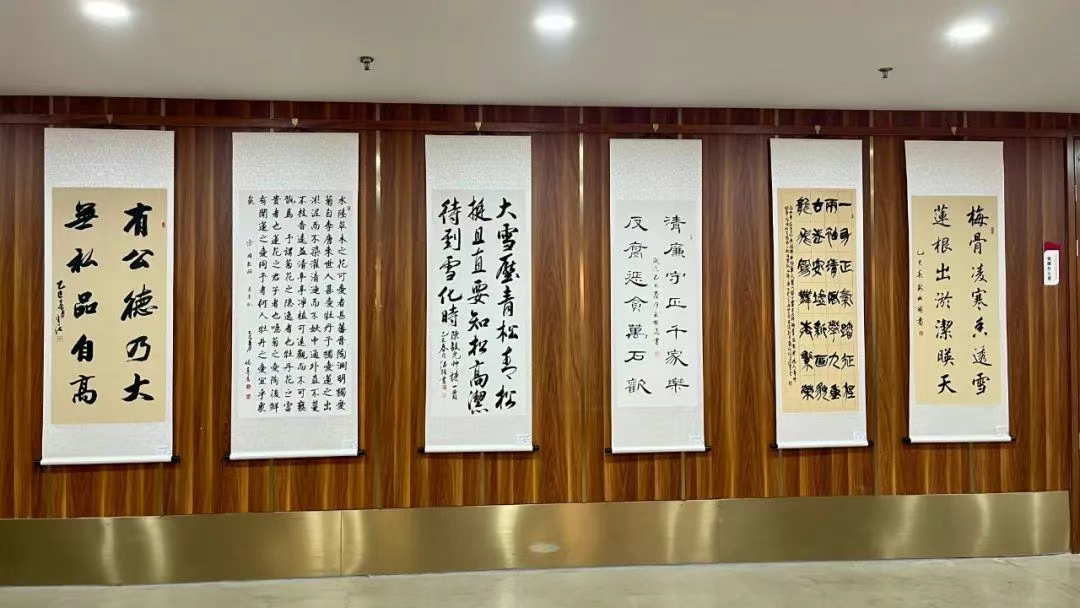 有公德乃大
無私品自高
水陸草木之花可愛者甚蕃晉陶淵明獨愛
菊自李唐來世人甚愛牡丹予獨愛蓮之出
淤泥而不染濯清漣而不妖中通外直不蔓
不枝香遠益清亭亭淨植可遠觀而不可褻
翫焉予謂菊花之隱逸者也牡丹花之富
貴者也蓮花之君子者也噫菊之愛陶後鮮
有聞蓮之愛同予者何人牡丹之愛宜乎衆
矣
大雪壓青松青松
挺且直要知松高潔
待到雪化時
陳毅元帥詩一首
清廉守正千家樂
反腐惩貪萬石歡
一身正氣踏征程
兩袖清風學九重
古老安墟新面貌
龍飛鳳舞繁榮
梅骨凌寒香透雪
蓮根出淤潔暎天